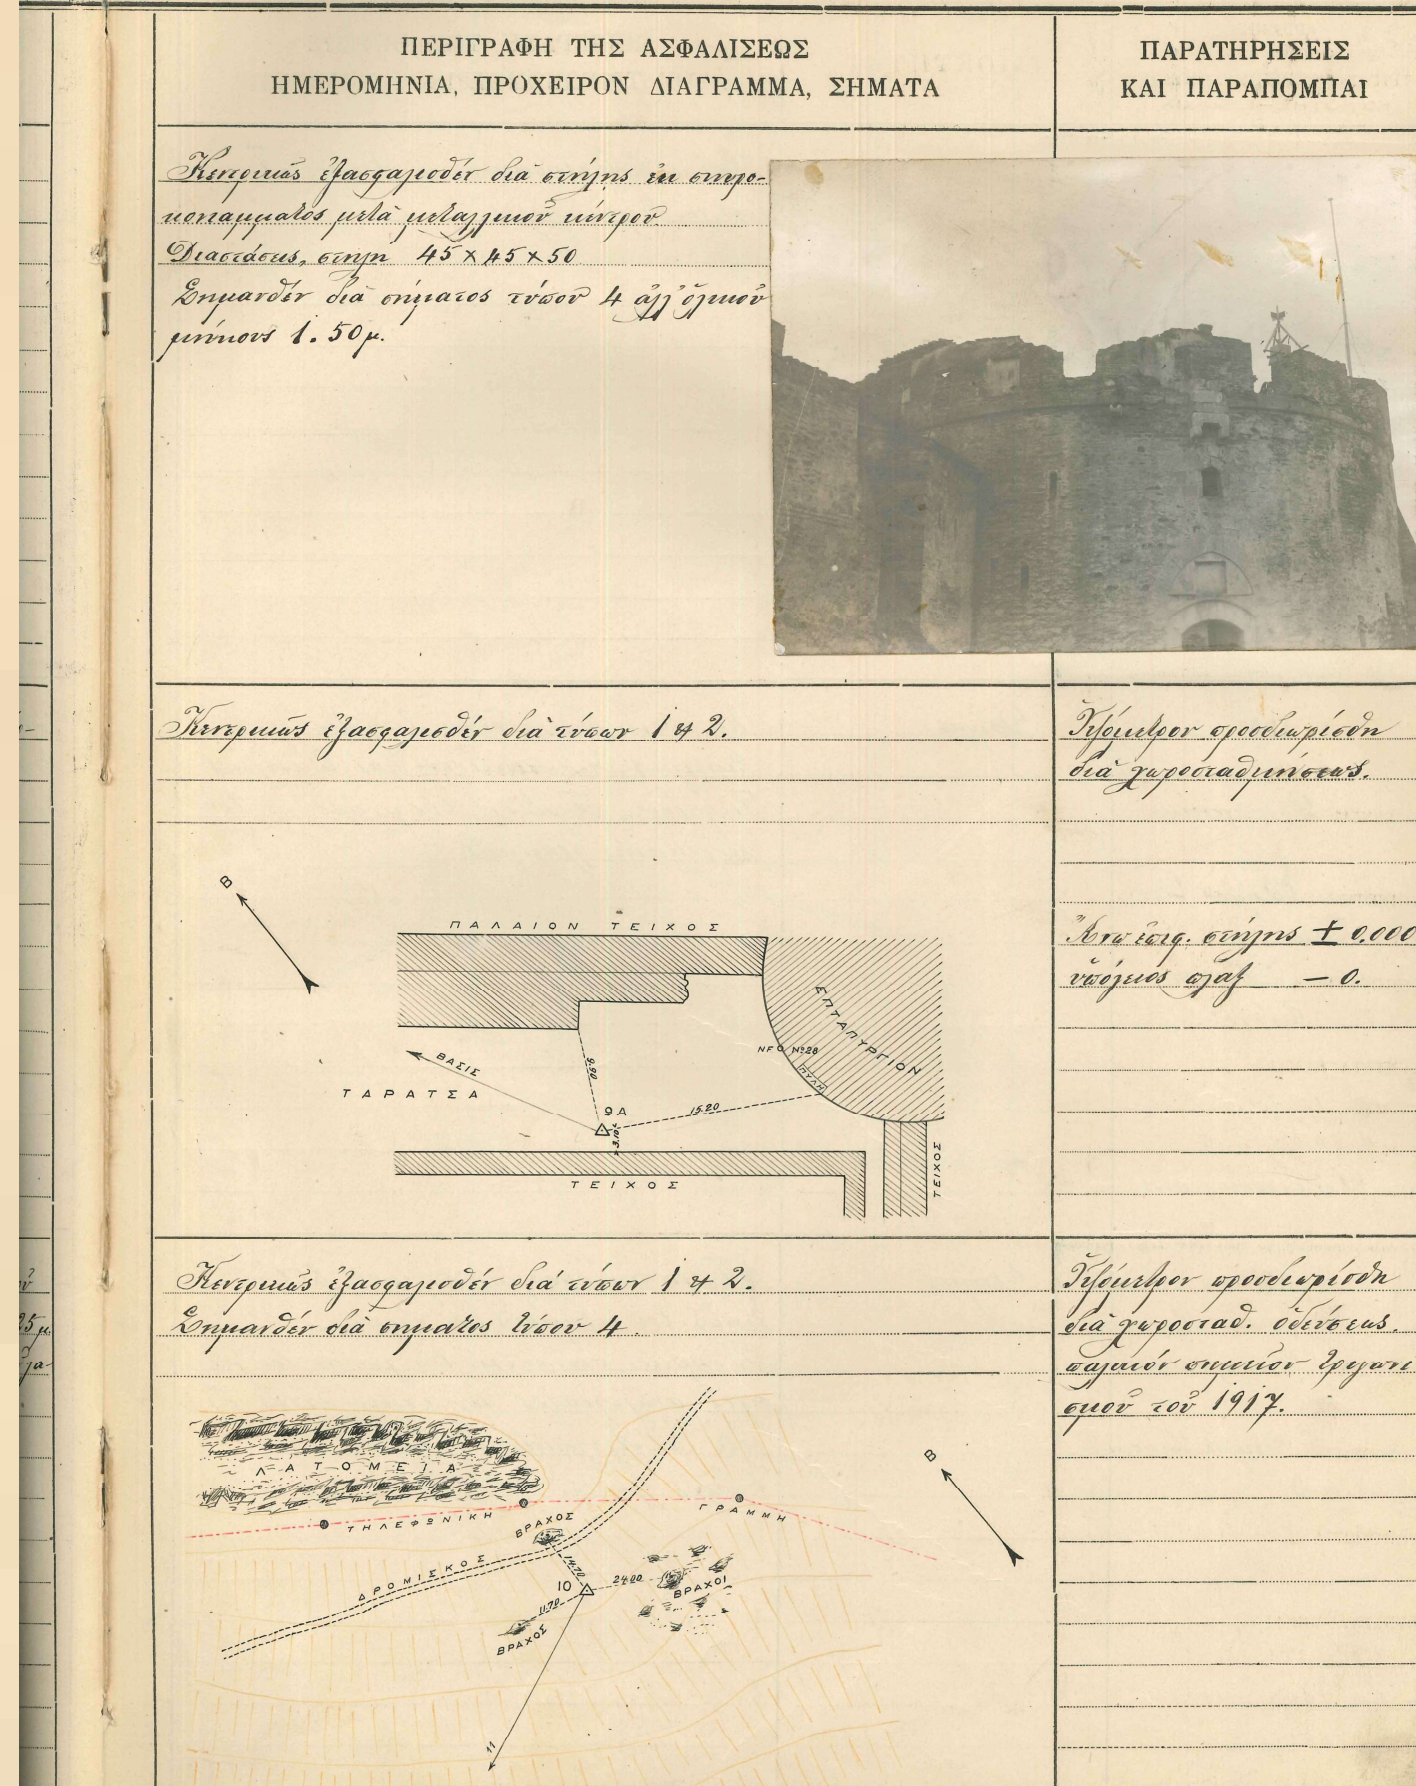 ΠΕΡΙΓΡΑΦΗ ΤΗΣ ΑΣΦΑΛΙΣΕΩΣ
ΗΜΕΡΟΜΗΝΙΑ, ΠΡΟΧΕΙΡΟΝ ΔΙΑΓΡΑΜΜΑ, ΣΗΜΑΤΑ
ΠΑΡΑΤΗΡΗΣΕΙΣ
ΚΑΙ ΠΑΡΑΠΟΜΠΑΙ
Κεντρικῶς ἐξασφαλισθέν διὰ στήλης ἐκ σκιρο-
κονιάμματος μετὰ μεταλλικοῦ κέντρου
Διαστάσεις, στήλη 45 × 45 × 50
Σημανθέν διὰ σήματος τύπου 4 ἀλλ' ὁλικοῦ
μήκους 1.50 μ.
Κεντρικῶς ἐξασφαλισθέν διὰ τύπων 1 & 2.
Ὑψόμετρον προσδιωρίσθη
διὰ χωροσταθμήσεως.
Ἄνω ἐπιφ. στήλης ± 0.000
ὑπόγειος πλάξ — 0.
Β
ΠΑΛΑΙΟΝ ΤΕΙΧΟΣ
ΕΠΤΑΠΥΡΓΙΟΝ
NF Nº28
ΠΥΛΗ
ΒΑΣΙΣ
ΤΑΡΑΤΣΑ
9.90
9Α
15.20
3.10
ΤΕΙΧΟΣ
ΤΕΙΧΟΣ
Κεντρικῶς ἐξασφαλισθέν διὰ τύπων 1 & 2.
Σημανθέν διὰ σήματος τύπου 4
Ὑψόμετρον προσδιωρίσθη
διὰ χωροσταθ. ὁδεύσεως.
παλαιόν σημεῖον τριγωνι
σμοῦ τοῦ 1917.
ΛΑΤΟΜΕΙΑ
ΤΗΛΕΦΩΝΙΚΗ ΓΡΑΜΜΗ
ΒΡΑΧΟΣ
Β
ΔΡΟΜΙΣΚΟΣ
14.70
10
24.00
ΒΡΑΧΟΙ
11.70
ΒΡΑΧΟΣ
11